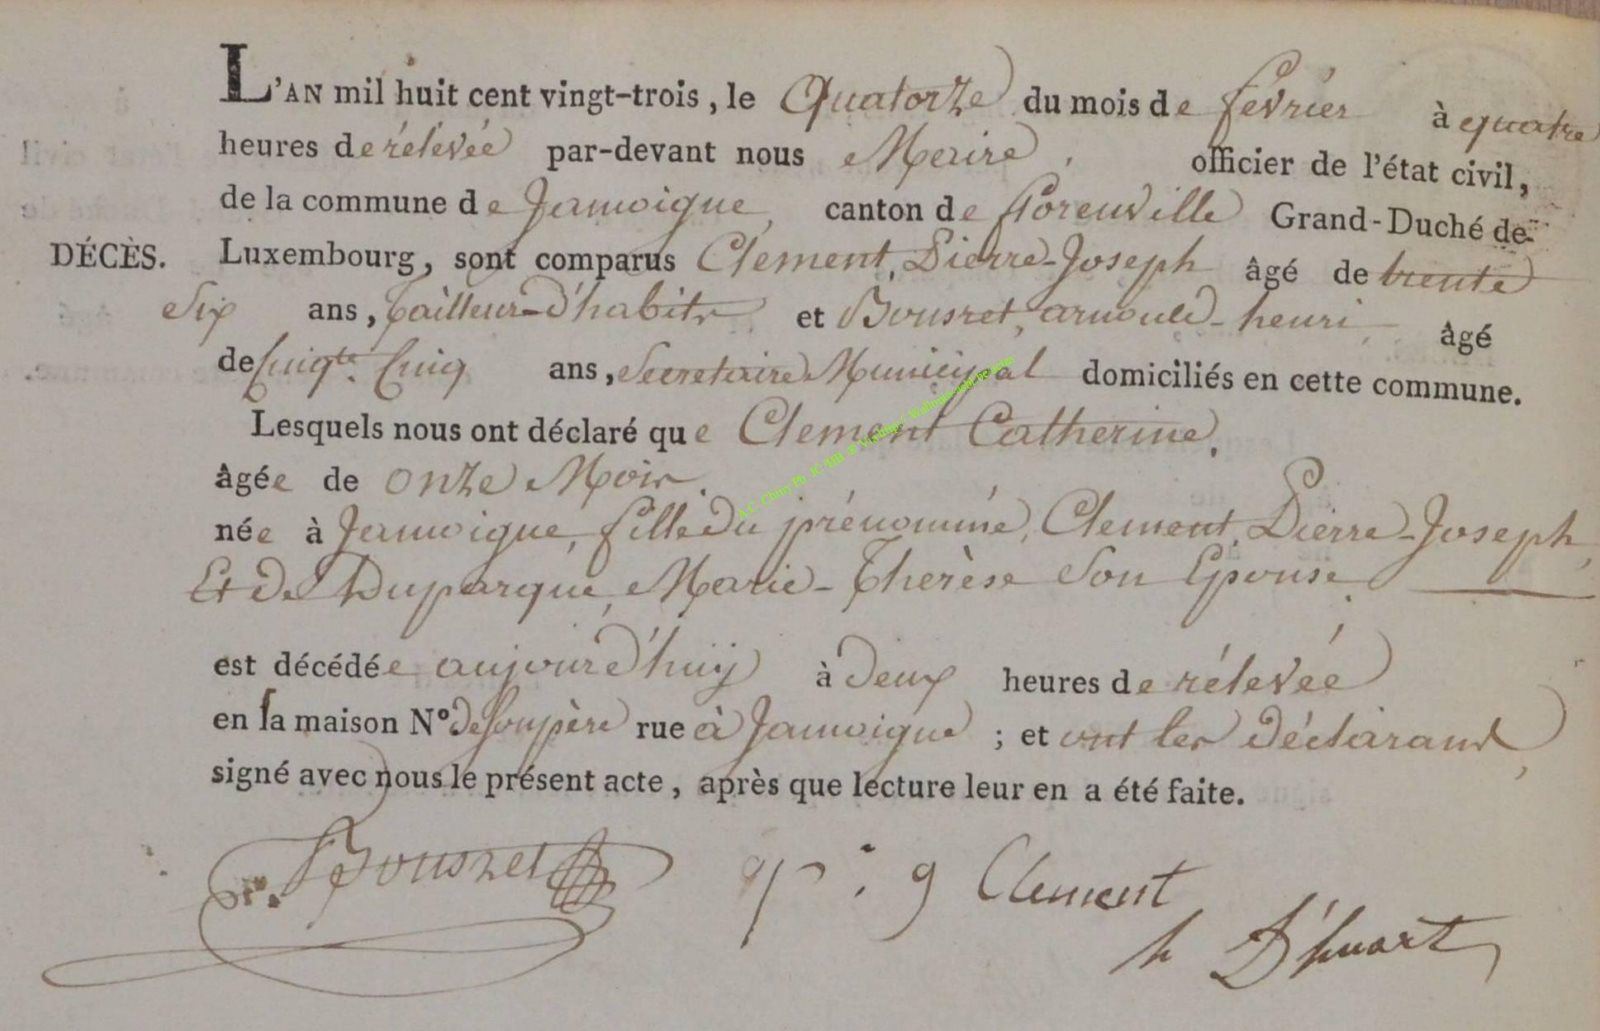 L'AN mil huit cent vingt-trois, le Quatorze du mois de février à quatre
heures de rélévée par-devant nous Maire, officier de l'état civil,
de la commune de Jamoigne, canton de florenville Grand-Duché de
DÉCÈS. Luxembourg, sont comparus Clement, Pierre-Joseph âgé de trente
Six ans, tailleur-d'habits et Bousret, arnould-henri, âgé
de Cinqte. Cinq ans, Secretaire Municipal domiciliés en cette commune.
Lesquels nous ont déclaré que Clement Catherine,
âgée de onze Mois.
née à Jamoigne, fille du prénommé, Clement, Pierre-Joseph,
Et de Duparque, Marie-Therèse Son Epouse.
est décédée aujourd'huy à deux heures de rélevée
en sa maison N° de son père rue à Jamoigne ; et ont les déclarans,
signé avec nous le présent acte, après que lecture leur en a été faite.
Bousret
Clement
h D'huart